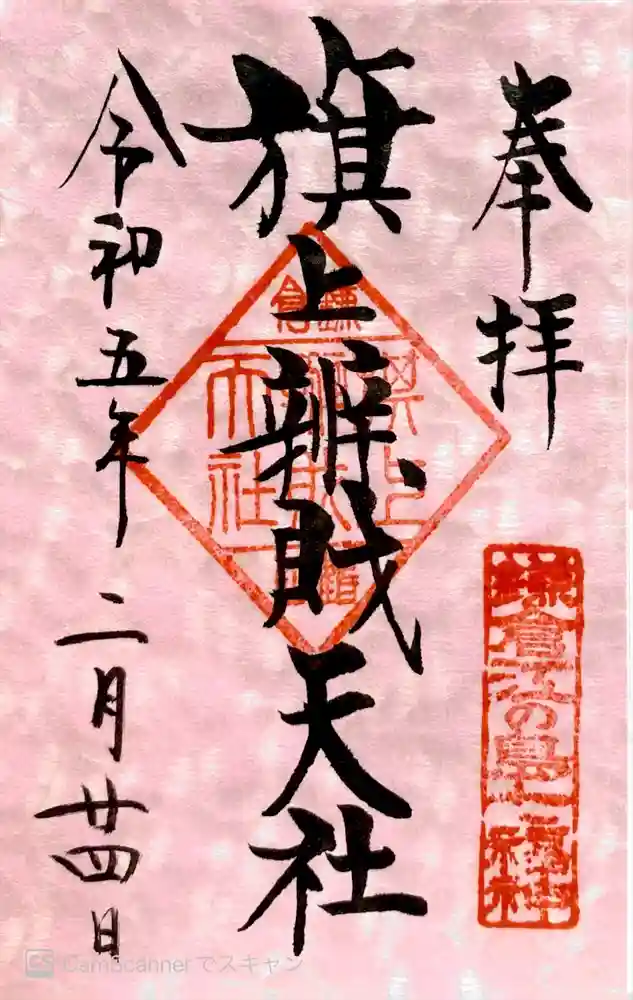 奉拝
鎌倉江の島七福神
旗上辨財天社
令和五年二月廿四日
CS CamScannerでスキャン